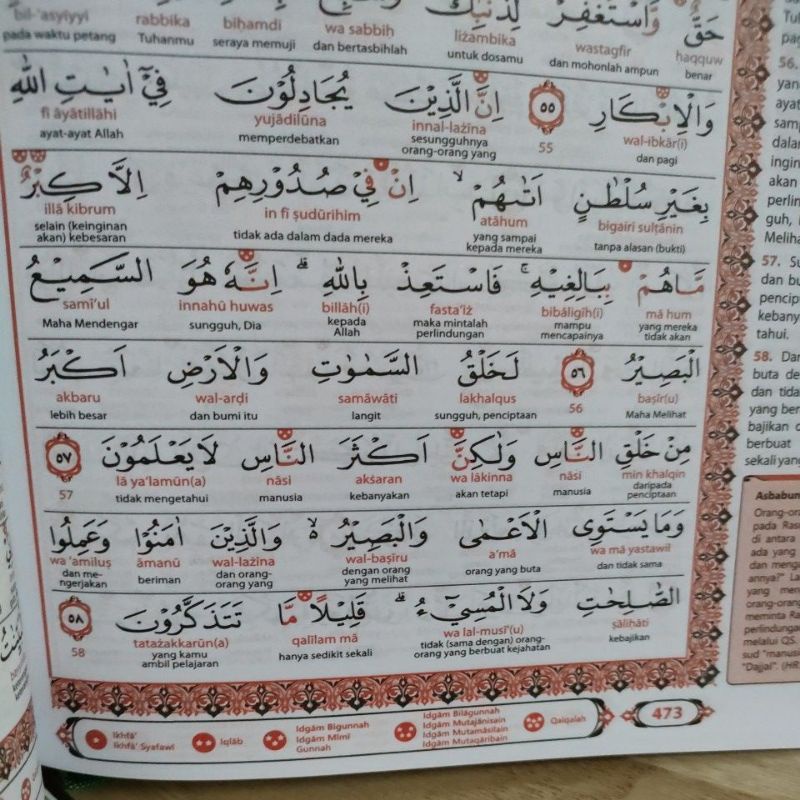 حَقٌّ وَّاسْتَغْفِرْ لِذَنْۢبِكَ
ḥaqquw wastagfir liżambika wa sabbiḥ biḥamdi rabbika bil-'asyiyyi
benar dan mohonlah ampun untuk dosamu dan bertasbihlah seraya memuji Tuhanmu pada waktu petang
وَالْاِبْكَارِ ٥٥ اِنَّ الَّذِيْنَ يُجَادِلُوْنَ فِيْٓ اٰيٰتِ اللّٰهِ
wal-ibkār(i) 55 innal-lażīna yujādilūna fī āyātillāhi
dan pagi sesungguhnya orang-orang yang memperdebatkan ayat-ayat Allah
بِغَيْرِ سُلْطٰنٍ اَتٰىهُمْ ۙ اِنْ فِيْ صُدُوْرِهِمْ اِلَّا كِبْرٌ
bigairi sulṭānin atāhum in fī ṣudūrihim illā kibrum
tanpa alasan (bukti) yang sampai kepada mereka tidak ada dalam dada mereka selain (keinginan akan) kebesaran
مَّا هُمْ بِبَالِغِيْهِ ۚ فَاسْتَعِذْ بِاللّٰهِ ۗ اِنَّهٗ هُوَ السَّمِيْعُ
mā hum bibāligīh(i) fasta'iż billāh(i) innahū huwas samī'ul
yang mereka tidak akan mampu mencapainya maka mintalah perlindungan kepada Allah sungguh, Dia Maha Mendengar
الْبَصِيْرُ ٥٦ لَخَلْقُ السَّمٰوٰتِ وَالْاَرْضِ اَكْبَرُ
baṣīr(u) 56 lakhalqus samāwāti wal-arḍi akbaru
Maha Melihat sungguh, penciptaan langit dan bumi itu lebih besar
مِنْ خَلْقِ النَّاسِ وَلٰكِنَّ اَكْثَرَ النَّاسِ لَا يَعْلَمُوْنَ ٥٧
min khalqin nāsi wa lākinna akṡaran nāsi lā ya'lamūn(a) 57
daripada penciptaan manusia akan tetapi kebanyakan manusia tidak mengetahui
وَمَا يَسْتَوِى الْاَعْمٰى وَالْبَصِيْرُ ەۙ وَالَّذِيْنَ اٰمَنُوْا وَعَمِلُوا
wa mā yastawil a'mā wal-baṣīru wal-lażīna āmanū wa 'amiluṣ
dan tidak sama orang yang buta dengan orang yang melihat dan orang-orang yang beriman dan mengerjakan
الصّٰلِحٰتِ وَلَا الْمُسِيْۤءُ ۗ قَلِيْلًا مَّا تَتَذَكَّرُوْنَ ٥٨
ṣāliḥāti wa lal-musī'(u) qalīlam mā tatażakkarūn(a) 58
kebajikan tidak (sama dengan) orang-orang yang berbuat kejahatan hanya sedikit sekali yang kamu ambil pelajaran
Ikhfā' Ikhfā' Syafawī
Iqlāb
Idgām Bigunnah Idgām Mimī Gunnah
Idgām Bilāgunnah Idgām Mutajānisain Idgām Mutamāsilain Idgām Mutaqāribain
Qalqalah
473
56.
yang
ayat
akan
57.
58. Dar
buta de
dan tida
yang ber
bajikan d
berbuat
sekali yang
Asbabun
Orang-ora
pada Ras
di antara
ada yang
dan menga
orang-oran
meminta Ra
perlindunga
melalui QS.
sud "manus
"Dajjal". (HR